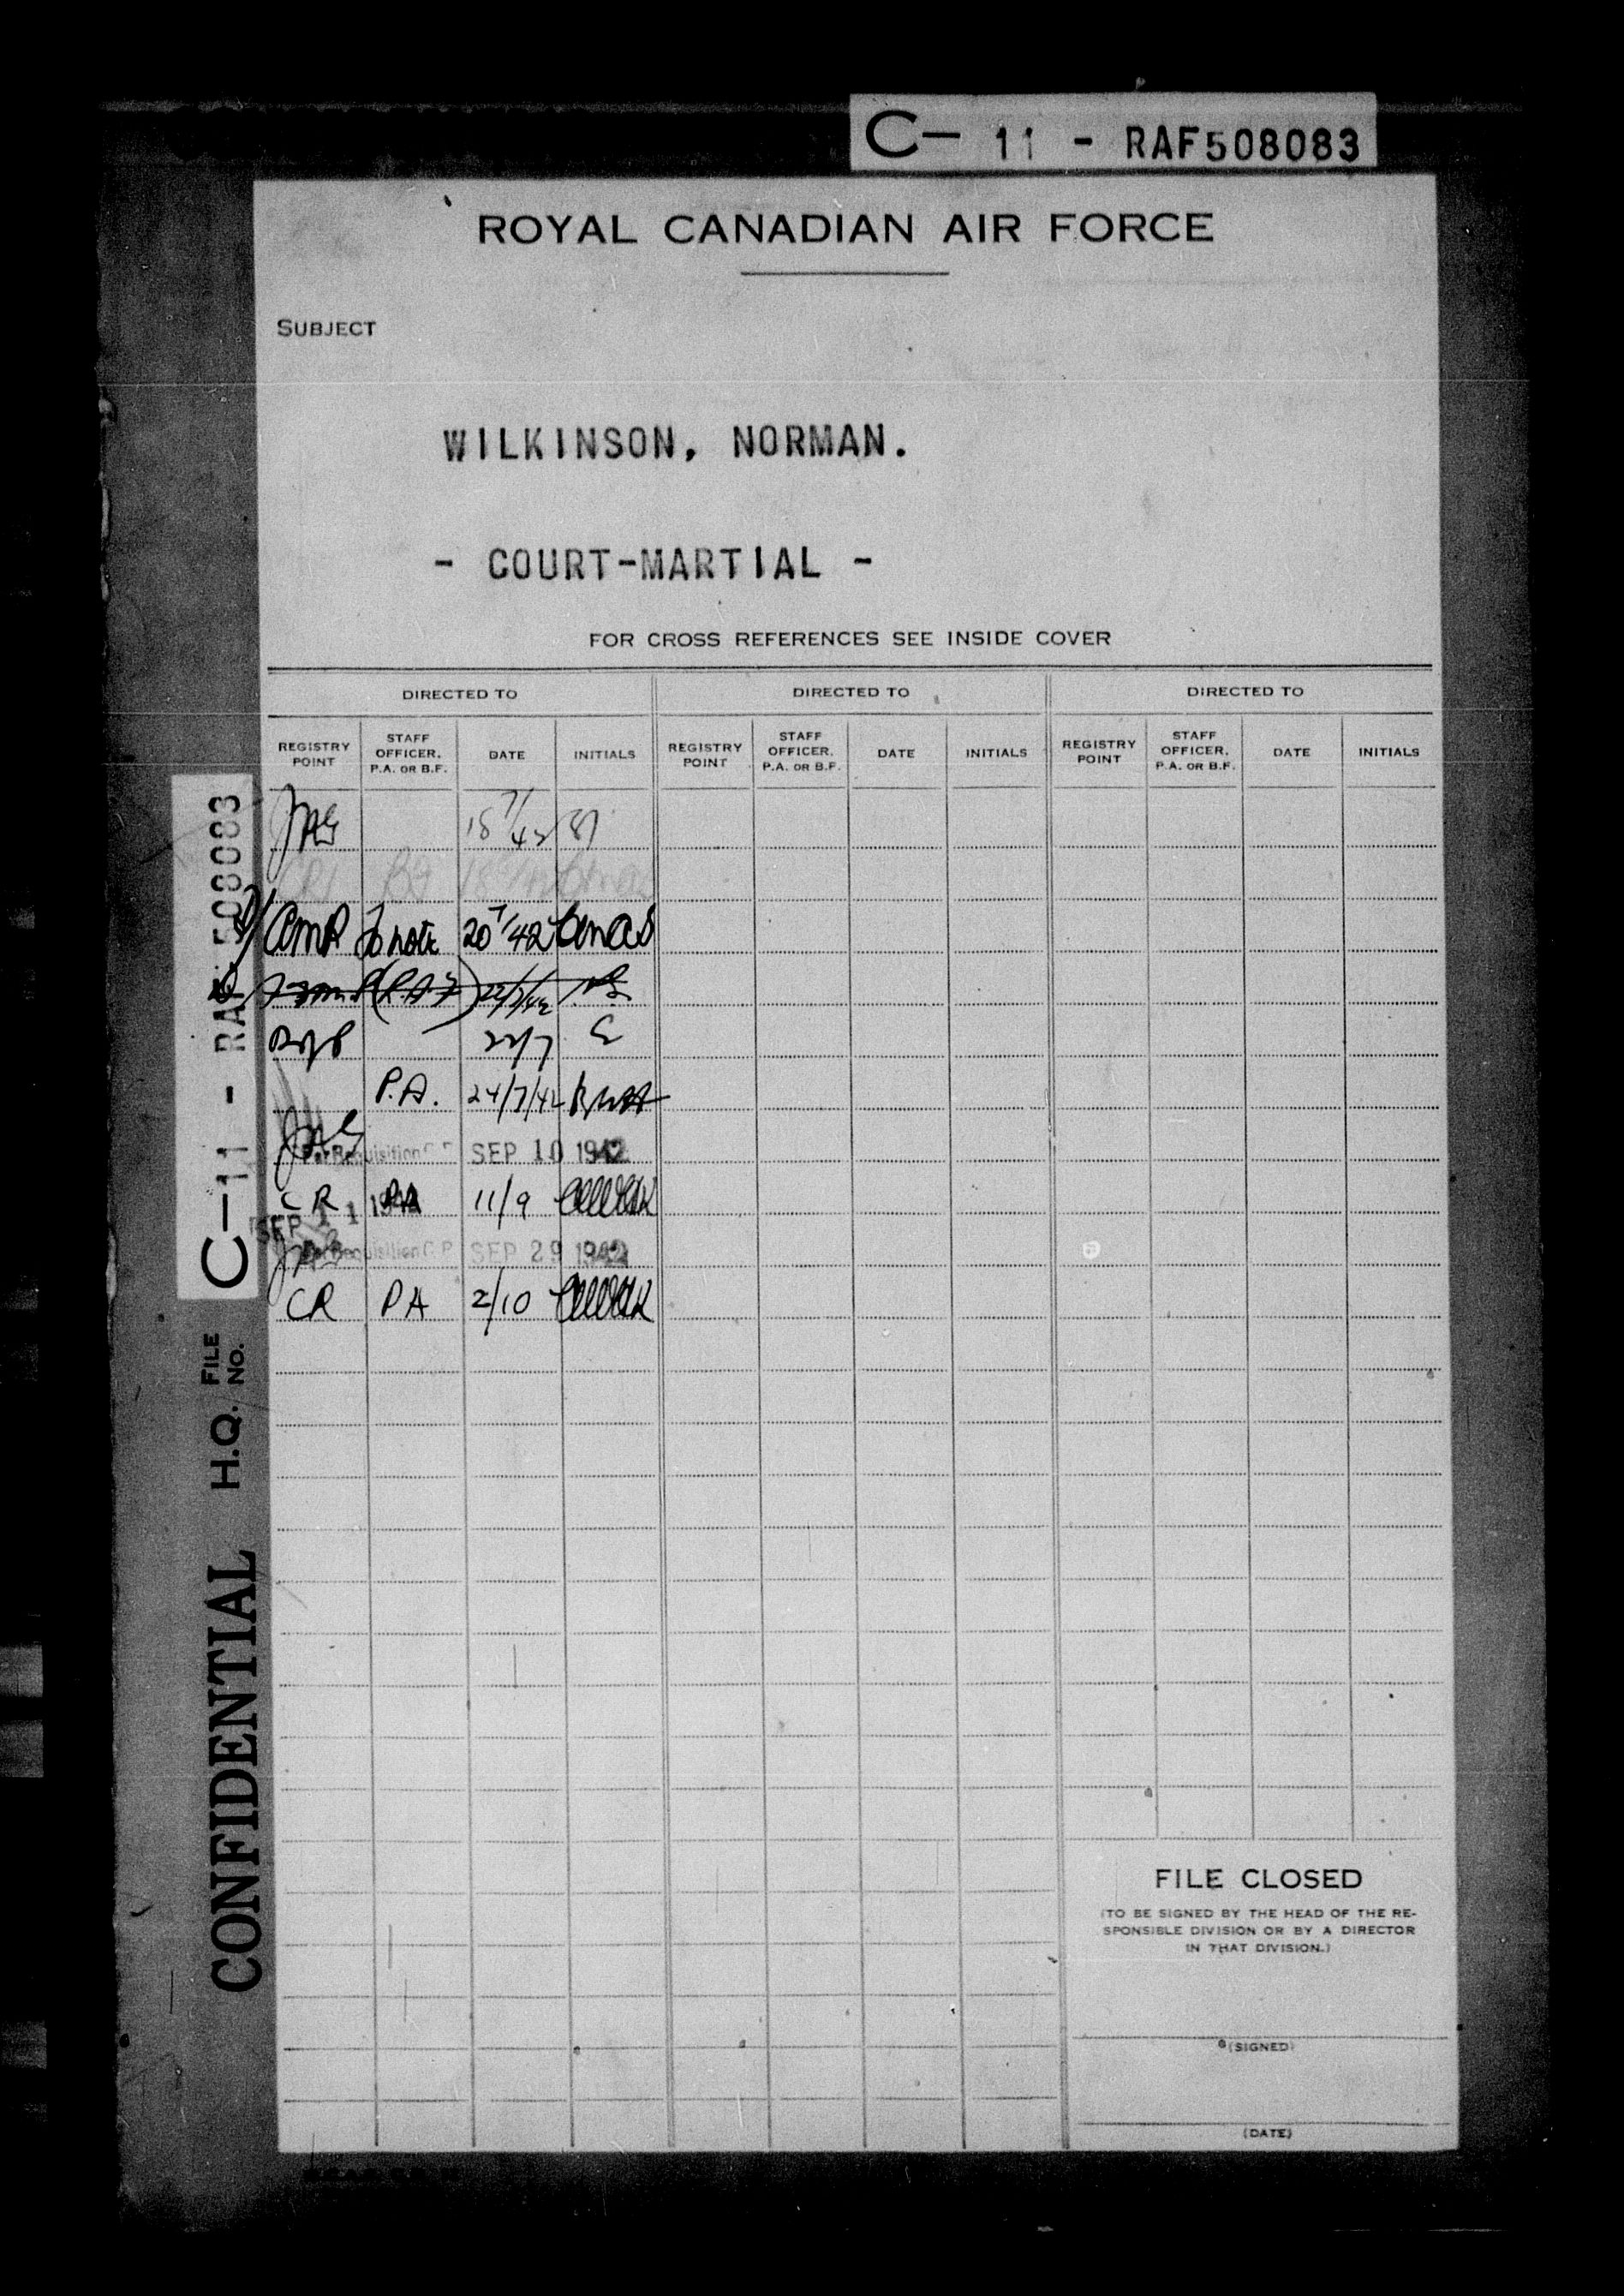 C- 11 - RAF508083
ROYAL CANADIAN AIR FORCE
SUBJECT
WILKINSON, NORMAN.
- COURT-MARTIAL -
FOR CROSS REFERENCES SEE INSIDE COVER
DIRECTED TO DIRECTED TO DIRECTED TO
REGISTRY POINT STAFF OFFICER. P.A. OR B.F. DATE INITIALS REGISTRY POINT STAFF OFFICER. P.A. OR B.F. DATE INITIALS REGISTRY POINT STAFF OFFICER. P.A. OR B.F. DATE INITIALS
JAG
AMP To note 20 7/42
22/7/42
22/7
P.A. 24/7/42
JAG Per Requisition C.R. SEP 10 1942
CR PA 11/9
SEP 11 1942
JAG Per Requisition C.R. SEP 29 1942
CR PA 2/10
CONFIDENTIAL H.Q. FILE NO. C-11 - RAF508083
FILE CLOSED
(TO BE SIGNED BY THE HEAD OF THE RE-
SPONSIBLE DIVISION OR BY A DIRECTOR
IN THAT DIVISION.)
(SIGNED)
(DATE)